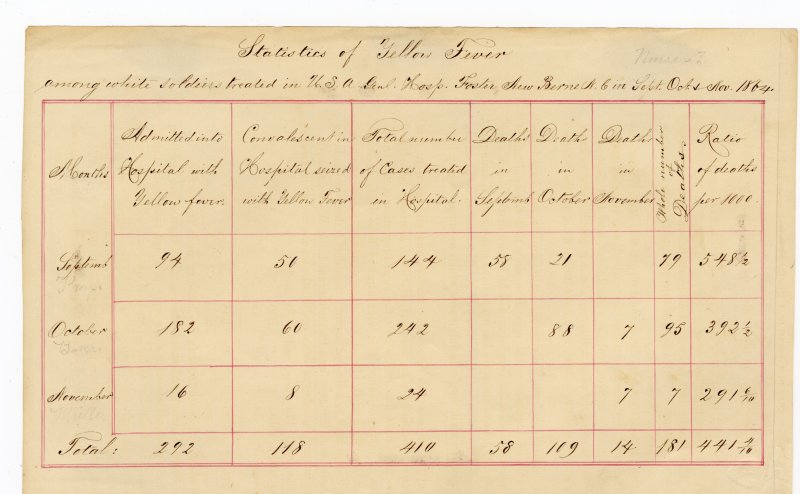 Statistics of Yellow Fever
among white soldiers treated in U. S. A. Genl. Hosp. Foster, New Berne N. C in Sept. Oct. & Nov. 1864.
Months
Admitted into
Hospital with
Yellow fever.
Convalescent in
Hospital seized
with Yellow Fever
Total number
of Cases treated
in Hospital.
Deaths
in
Septemb
Deaths
in
October
Deaths
in
November
Whole number
of
Deaths.
Ratio
of deaths
per 1000.
Septemb 94 50 144 58 21 79 548 1/2
October 182 60 242 88 7 95 392 1/2
November 16 8 24 7 7 291 6/10
Total: 292 118 410 58 109 14 181 441 4/10